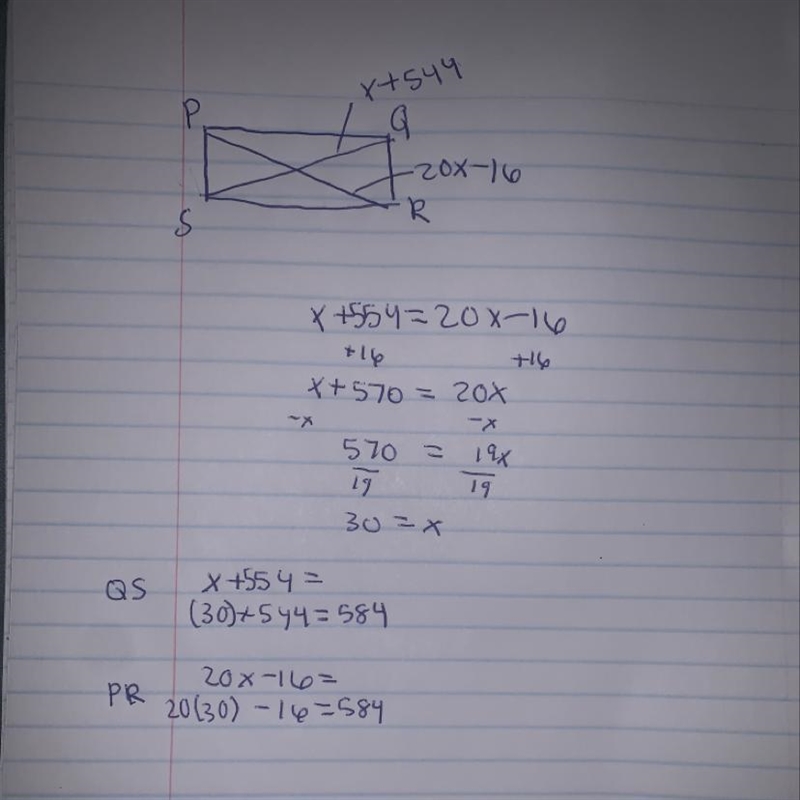 x+544
P
Q
20x-16
S
R
x+554=20x-16
+16 +16
x+570 = 20x
-x -x
570 = 19x
19 19
30 = x
QS x+554=
(30)+544=584
PR 20x-16=
20(30) -16=584